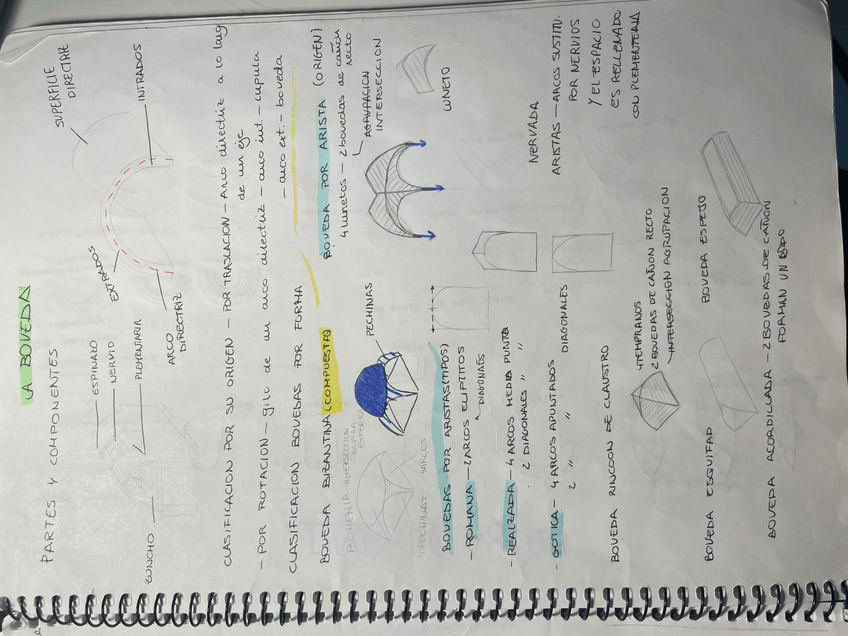 LA BOVEDA
PARTES Y COMPONENTES
ESPINAZO
NERVIO
PLEMENTARIA
ZUNCHO
SUPERFICIE DIRECTRIZ
INTRADOS
EXTRADOS
ARCO DIRECTRIZ
CLASIFICACION POR SU ORIGEN - POR TRASLACION - Arco directriz a lo larg
de un eje
- POR ROTACION - giro de un arco directriz - arco int. - cupula
- arco ext. - boveda
CLASIFICACION BOVEDAS POR FORMA
BOVEDA BIZANTINA (COMPUESTA)
BOHEMIA - INTERSECCION
PECHINAS
4 PECHINAS 4 ARCOS
BOVEDA POR ARISTA (ORIGEN)
4 lunetos - 2 bovedas de cañón
recto
AGRUPACION
INTERSECCION
LUNETO
BOVEDAS POR ARISTAS (TIPOS)
- ROMANA - 2 ARCOS ELIPTITOS
DIAGONALES
- REALZADA - 4 ARCOS MEDIO PUNTO
2 DIAGONALES " "
- GOTICA - 4 ARCOS APUNTADOS
2 " " DIAGONALES
NERVADA
ARISTAS - ARCOS SUSTITU.
POR NERVIOS
Y EL ESPACIO
ES RELLENADO
CON PLEMENTERIA
BOVEDA RINCOON DE CLAUSTRO
4 TEMPRANOS
2 BOVEDAS DE CAÑON RECTO
INTERSECCION AGRUPACION
BOVEDA ESQUIFAD
BOVEDA ESPEJO
BOVEDA ACORDILLADA - 2 BOVEDAS DE CAÑON
FORMAN UN